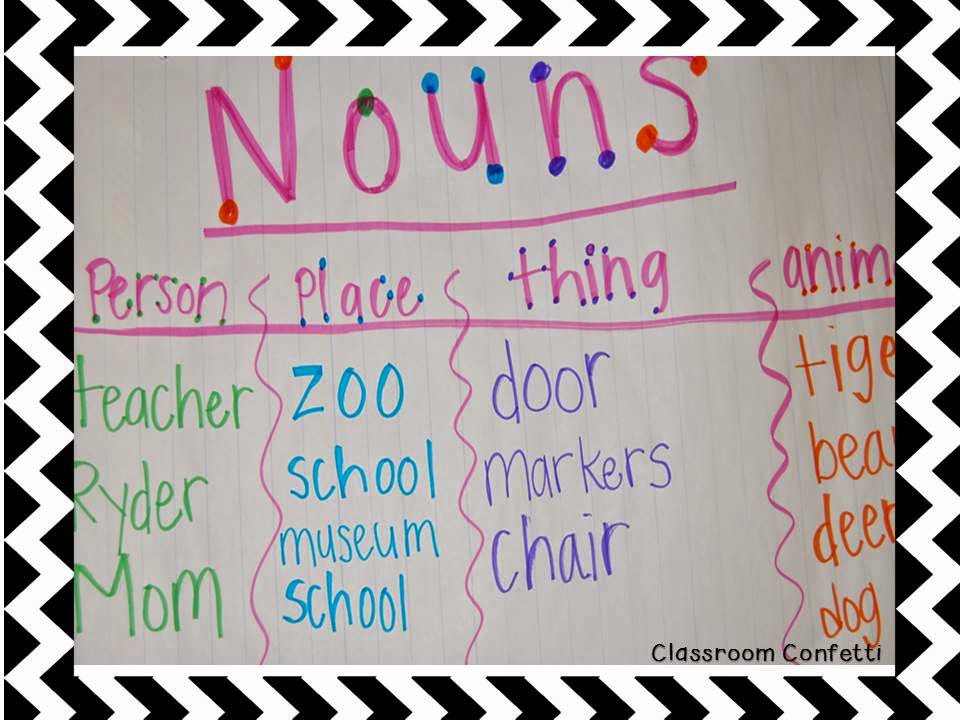 Nouns
Person Place thing anim
teacher zoo door tige
Ryder school markers bea
Mom museum chair deer
school dog
Classroom Confetti